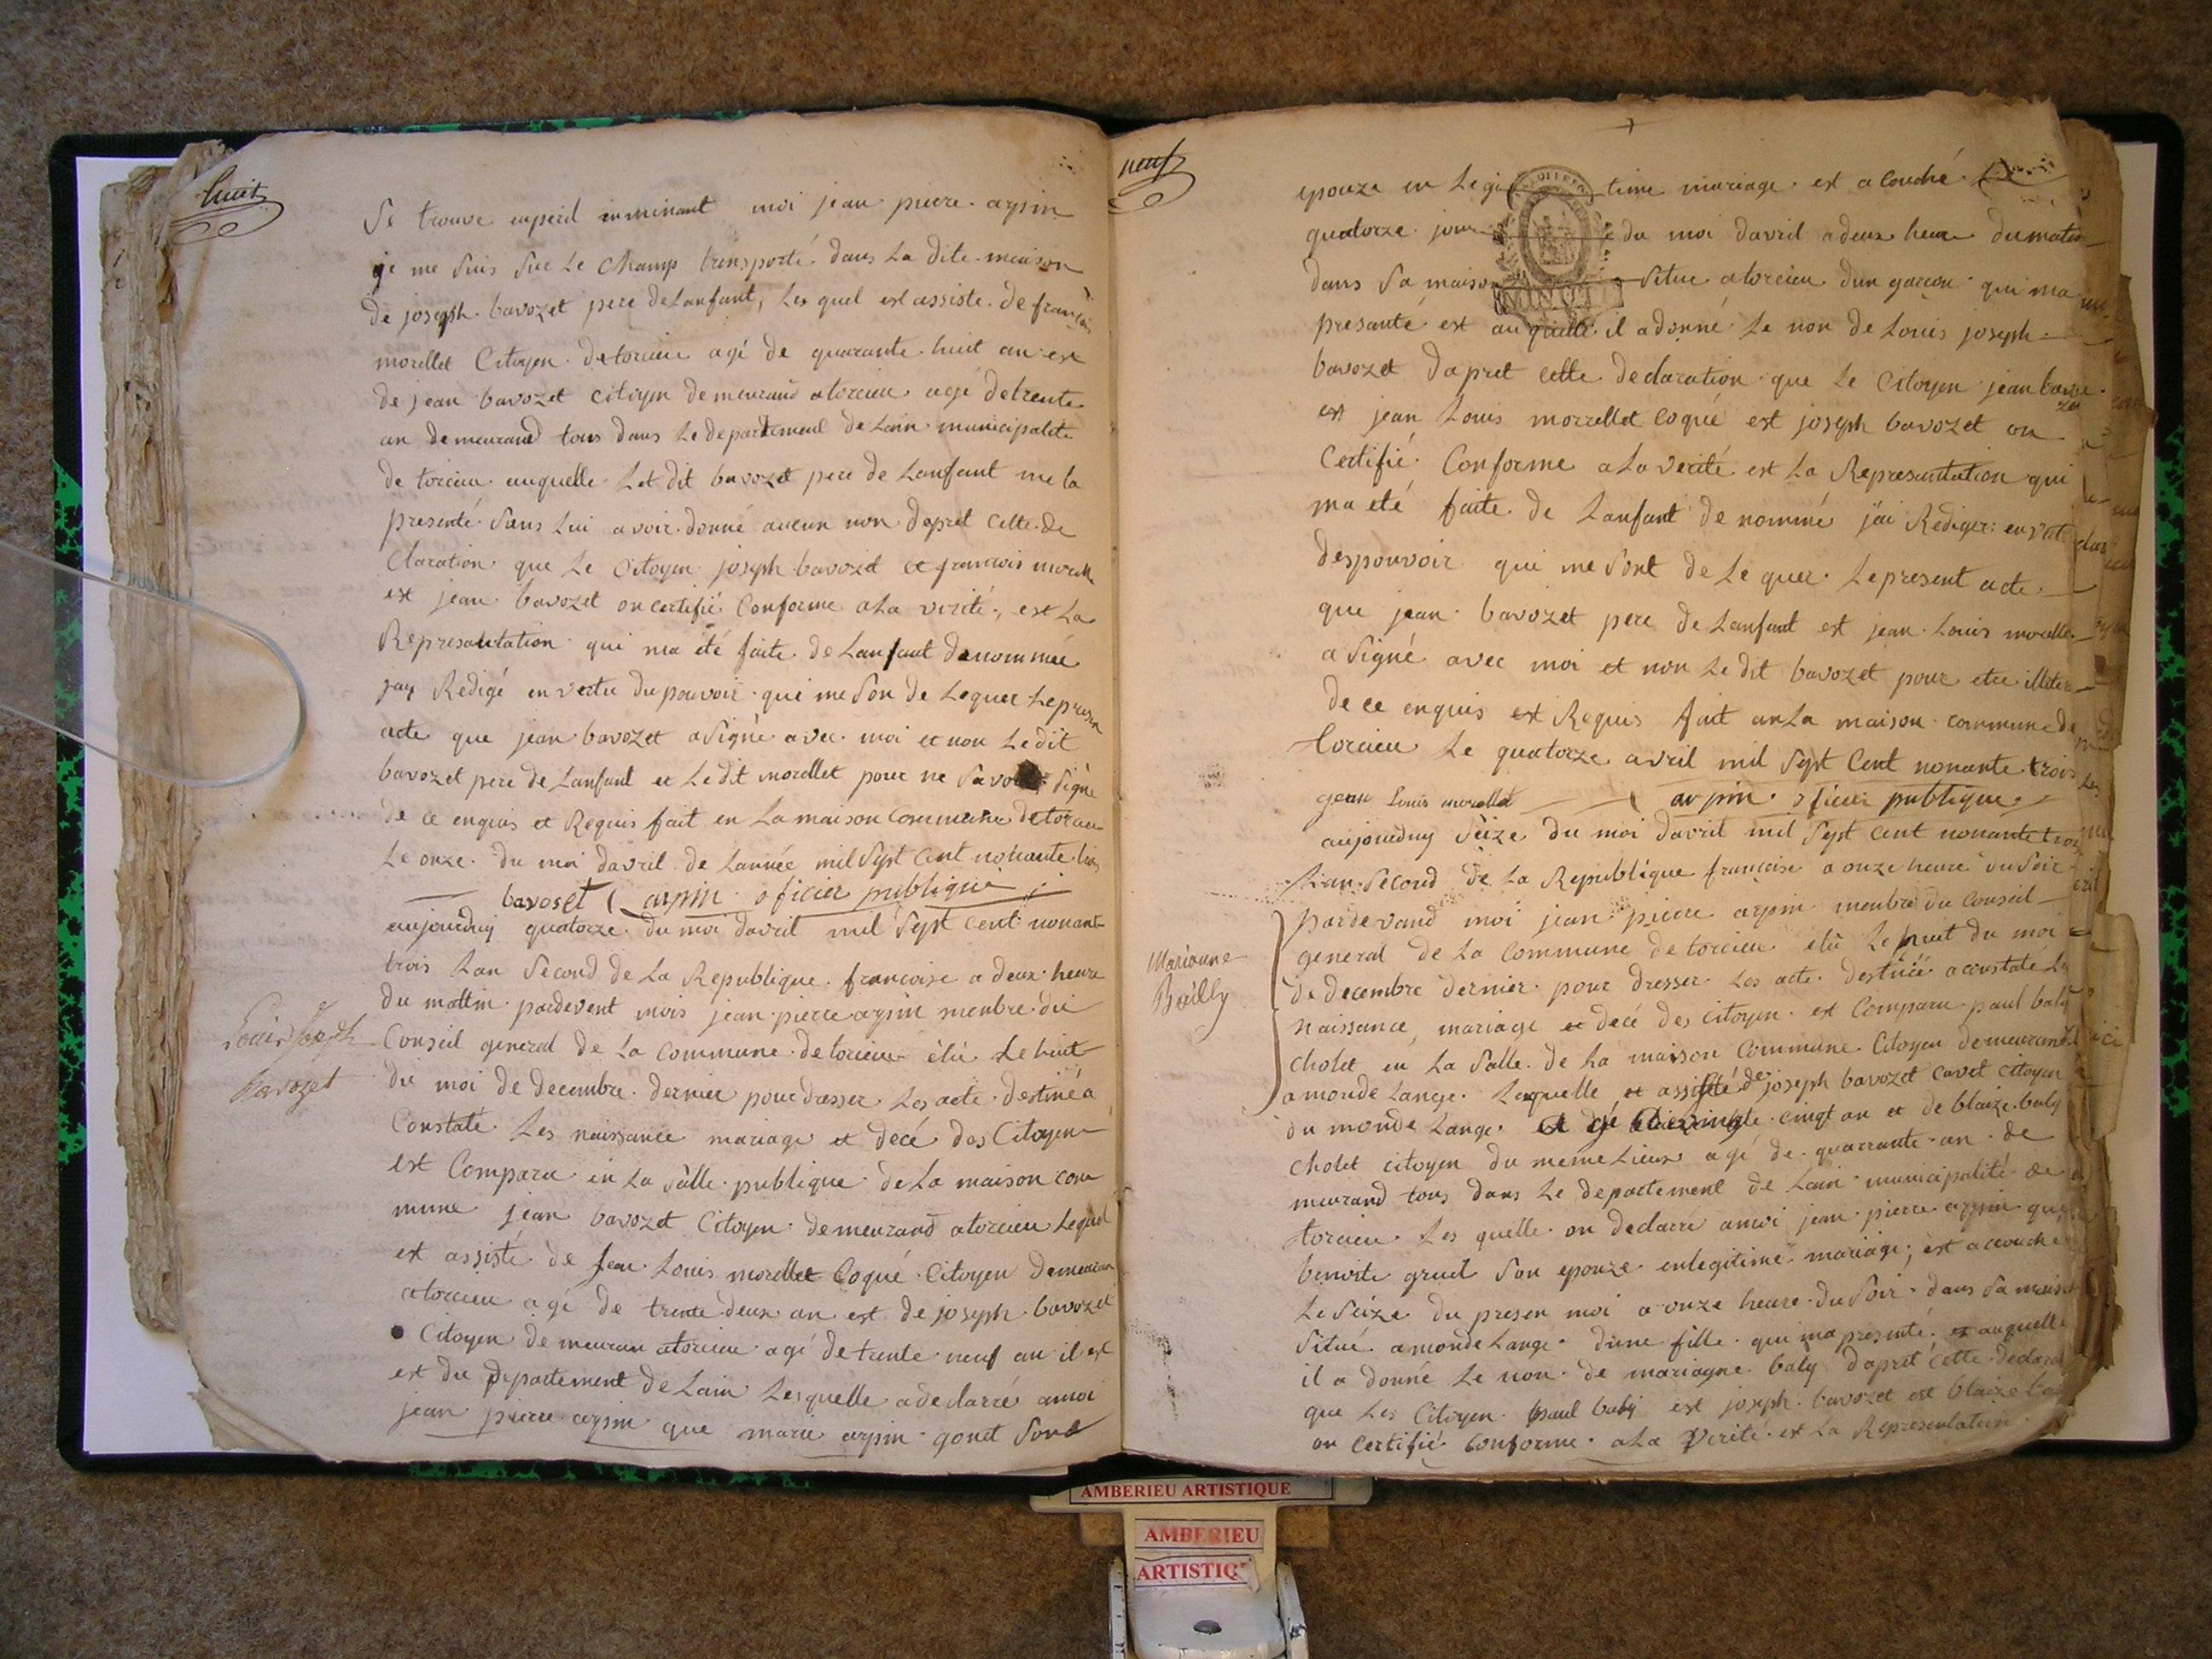 huit
Se trouve enperil imminant moi jean pierre arpin
je me Suis Sur Le Champ transporté dans La dite maison
de joseph bavozet pere deLanfant, Les quel est assiste de françois
morellet Citoyen detorcieu agé de quarante huit an est
de jean bavozet citoyen demeurand atorcieu agé detrente
an demeurand tous dans Le departement de Lain municipalité
de torcieu auquelle Let dit bavozet pere de Lanfant me la
presenté Sans Lui avoir donné aucun non dapret Cette de
Claration que Le Citoyen joseph bavozet et francois morelle
est jean bavozet on certifié Conforme ala verité, est La
Representation qui ma été faite de Lanfant denommée
jay Redigé en vertu du pouvoir qui me Son de Leguer Lepresen
acte que jean bavozet aSigné avec moi et non Ledit
bavozet pere de Lanfant et Ledit morellet pour ne Savoir Signé
de ce enquis et Requis fait en La maison Commune de torcieu
Le onze du moi davril de Lannée mil Sept Cent nonante trois
bavoset arpin oficier publique
aujourduy quatorze du moi davril mil Sept cent nonant
trois Lan Second de La Republique francoise a deux heure
du mattin pardevent mois jean pierre arpin menbre du
Louis Joseph
Bavozet
Conseil general de La Commune detorcieu élû Le huit
du moi de decembre dernier pour dresser Les acte destiné a
Constaté Les naissance mariage et decé des Citoyen
est Comparu en La Salle publique de La maison com
mune jean bavozet Citoyen demeurand atorcieu Lequel
est assisté de jean Louis morellet Coqué Citoyen demeuran
atorcieu agé de trente deux an est de joseph bavozet
Citoyen demeuran atorcieu agé detrente neuf an il est
est du departement de Lain Lesquelle adeclarré amoi
jean pierre arpin que marie arpin gonet Son
neuf
epouze en Legi time mariage est acouché Le
quatorze jour du moi davril a deux heure du matin
dans Sa maison Situe atorcieu dun garcon qui ma
presanté est auquelle il adonné Le non de Louis joseph
bavozet dapret cette declaration que Le Citoyen jean bavozet
est jean Louis morellet Coqué est joseph bavozet on
Certifié Conforme ala verité est La Representation qui
ma été faite de Lanfant denommé jai Rediger en vertu
despouvoir qui me Sont de Leguer Lepresent acte
que jean bavozet pere de Lanfant est jean Louis morelle
aSigné avec moi et non Ledit bavozet pour etre illiter
de ce enquis est Requis fait anLa maison commune de
torcieu Le quatorze avril mil Sept Cent nonante trois
gean Louis morellet arpin oficier publique
aujourduy Seize du moi davril mil Sept cent nonante trois
Lan Second de La Republique françoise a onze heure du Soir
pardevand moi jean pierre arpin menbre du Conseil
Marianne
Bailly
general de La Commune de torcieu élû Le huit du moi
de decembre dernier pour dresser Les acte destiné aconstaté La
naissance, mariage et decé des citoyen est Comparu paul baly
cholet en La Salle de La maison Commune Citoyen demeurand
amonde Lange Lequelle et assisté de joseph bavozet cavet citoyen
du monde Lange cingt an et de blaize baly
cholet citoyen du meme Lieux agé de quarrante an de
meurand tous dans Le departement de Lain municipalité de
torcieu Les quelle on declarré amoi jean pierre arpin que
benoite gruet Son epouze enlegitime mariage, est acouché
Le Seize du presen moi a onze heure du Soir dans Sa maison
Situé amonde Lange dune fille qui ma presenté et auquelle
il a donné Le non de mariagne baly dapret cette declara
que Les Citoyen paul baly est joseph bavozet est blaize baly
on Certifié Conforme ala Verité est La Representation
AMBERIEU ARTISTIQUE
AMBERIEU
ARTISTIQ